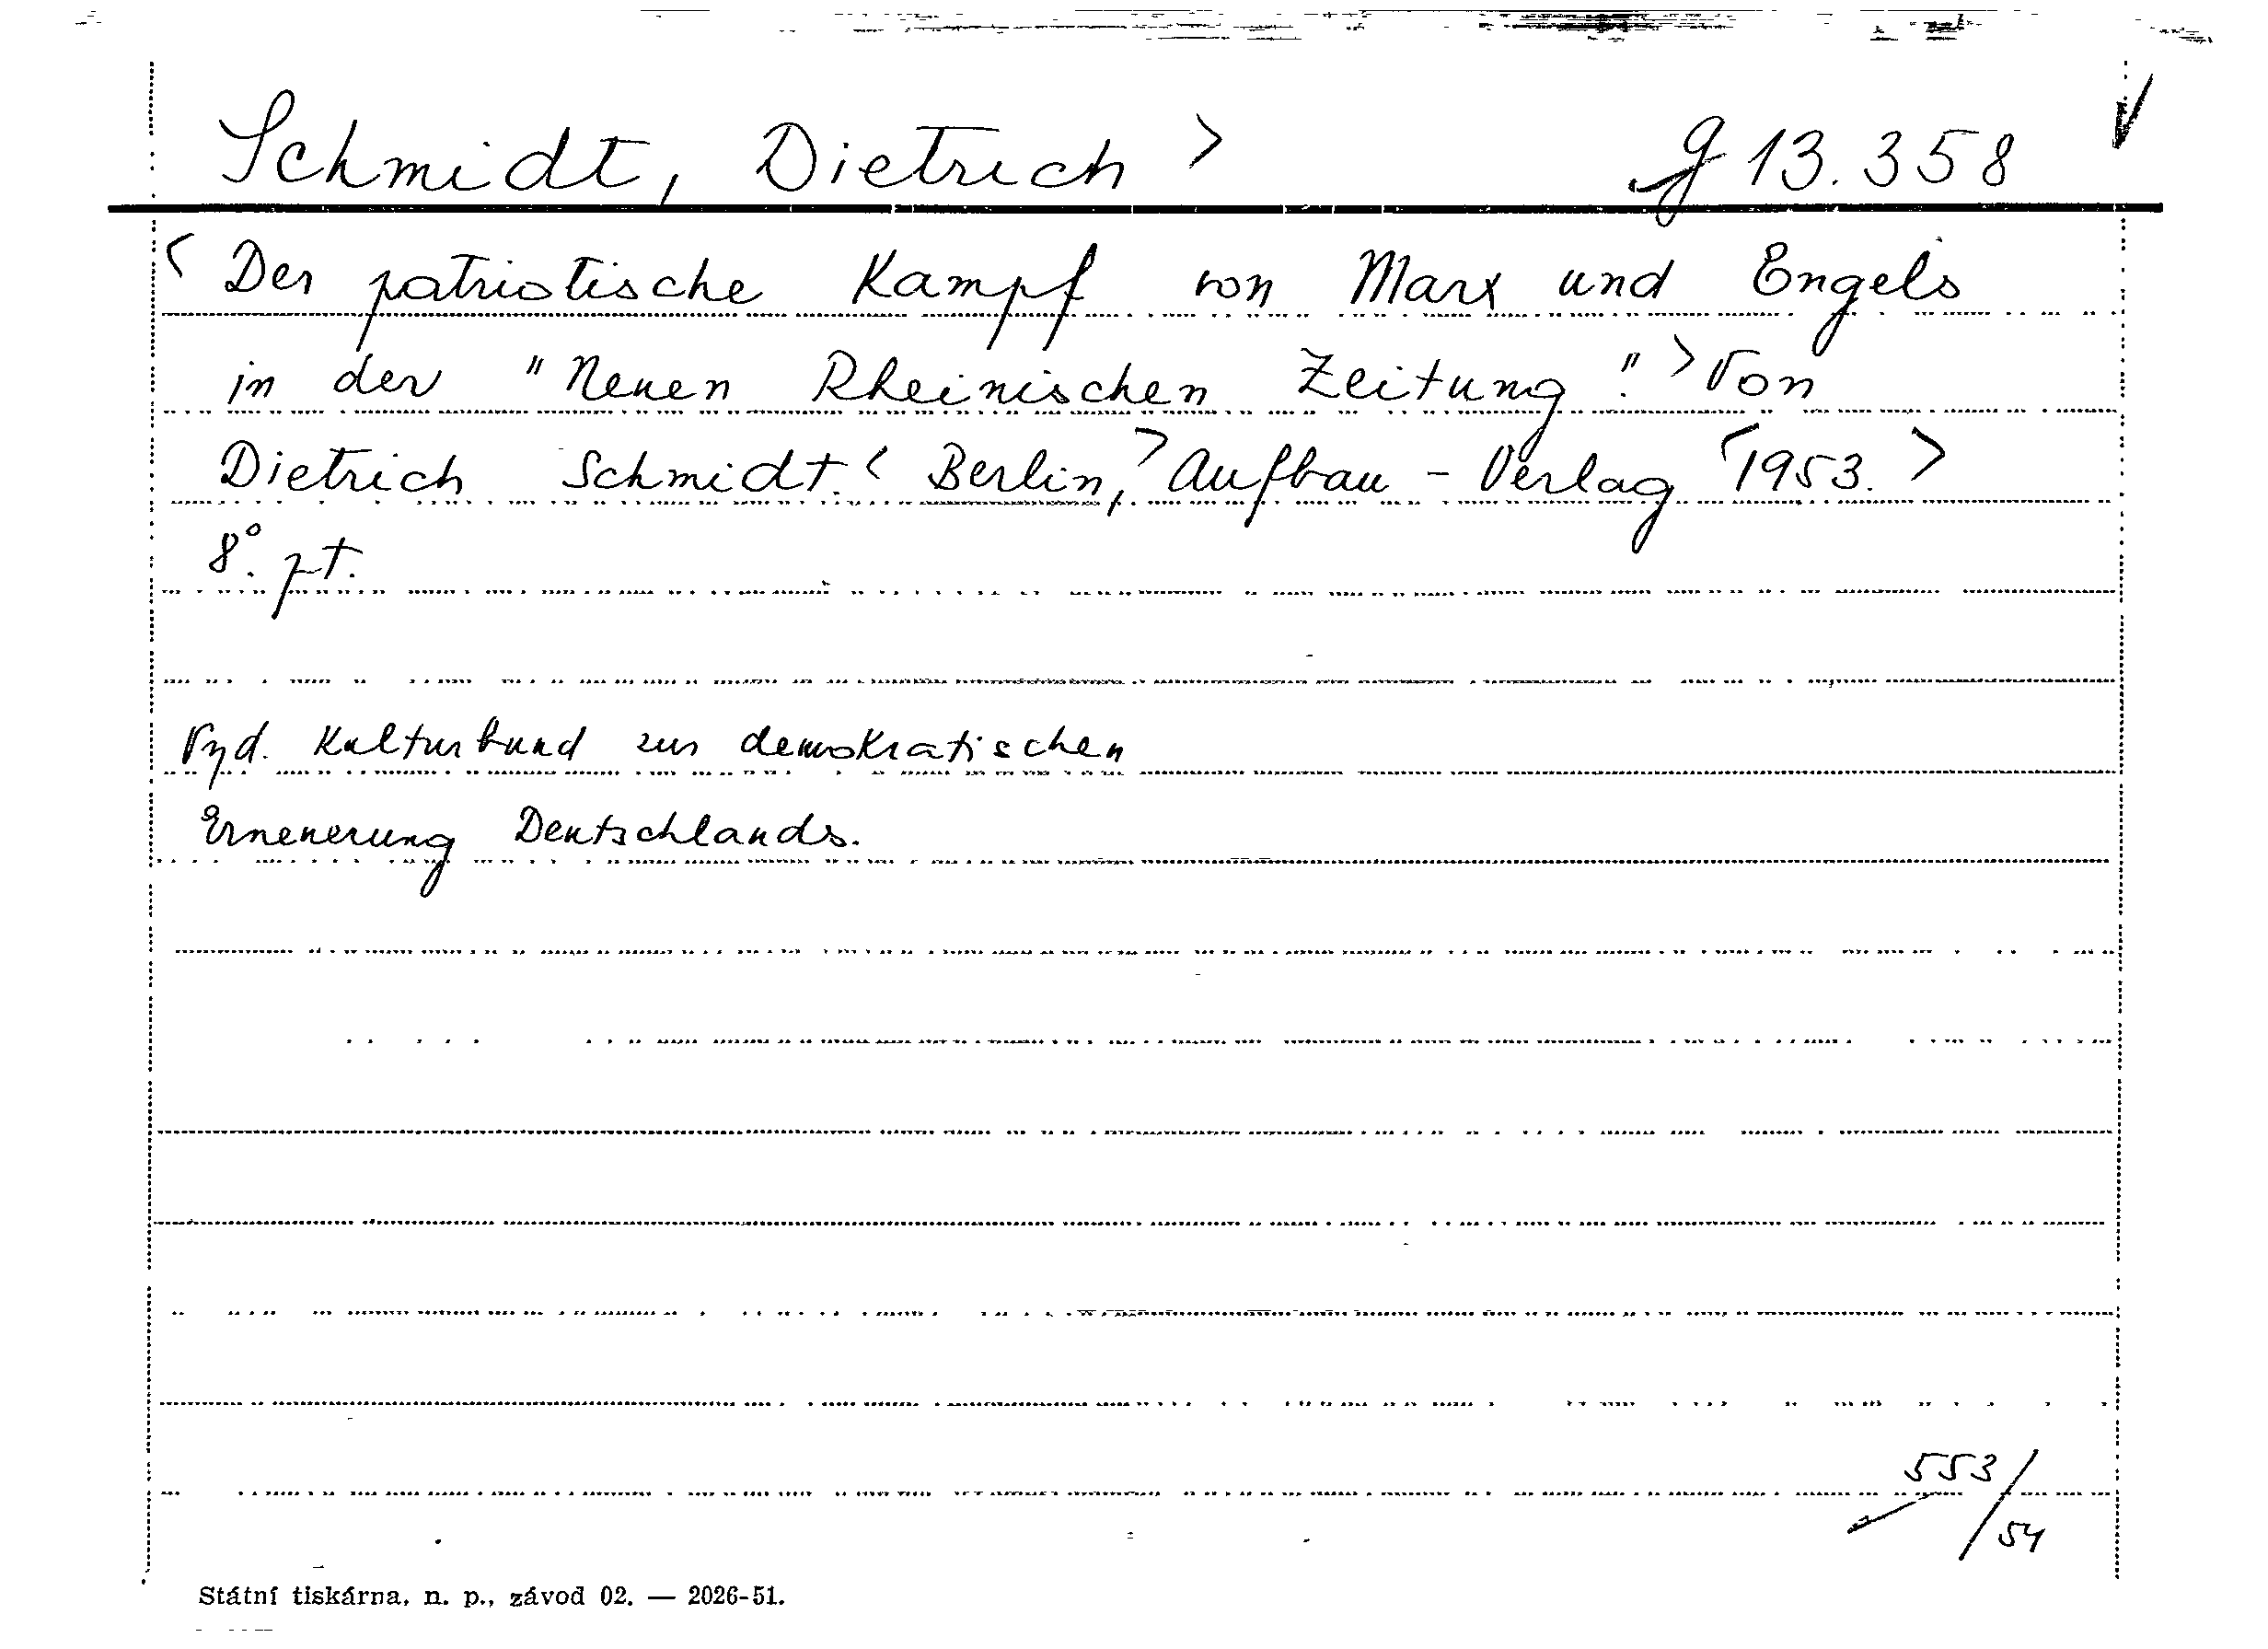 Schmidt, Dietrich > g 13.358
< Der patriotische Kampf von Marx und Engels
in der "Neuen Rheinischen Zeitung." > Von
Dietrich Schmidt. < Berlin, > Aufbau - Verlag < 1953. >
8°. pt.
Vyd. Kulturbund zur demokratischen
Erneuerung Deutschlands.
553/54
Státní tiskárna, n. p., závod 02. — 2026-51.